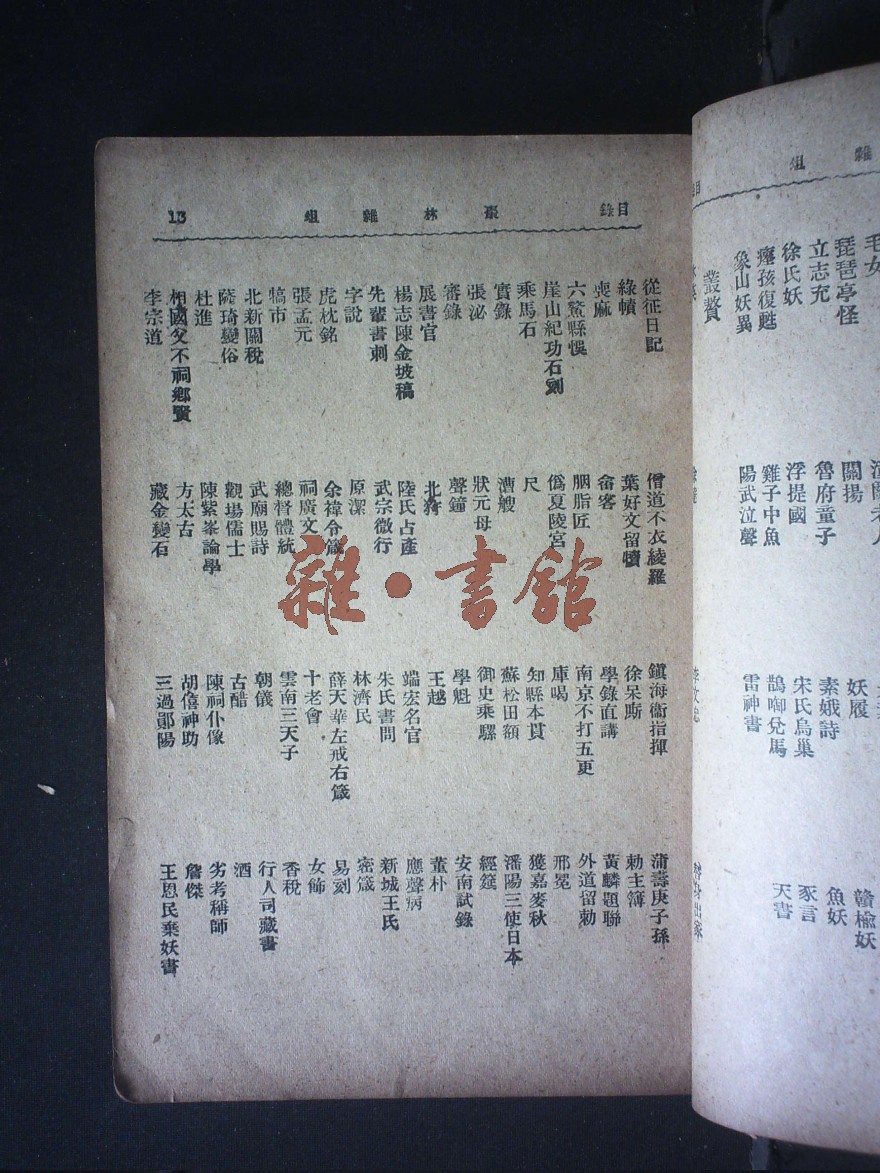 雜 組
毛女
琵琶亭怪 關揚 妖履 贛榆妖
立志充 魯府童子 素娥詩 魚妖
徐氏妖 浮提國 宋氏烏巢 豕言
瘞孩復甦 雞子中魚 鵲啣兌馬 天書
象山妖異 陽武泣聲 雷神書
叢贅
目錄 棗林雜組 13
從征日記 僧道不衣綾羅 鎮海衞指揮 蒲壽庚子孫
綠幘 葉好文留犢 徐呆廝 勅主簿
喪麻 畬客 學錄直講 黃麟題聯
六鰲縣悞 胭脂匠 南京不打五更 外道留勅
崖山紀功石劖 僞夏陵宮 庫喝 邢冕
乘馬石 尺 知縣本貫 獲嘉麥秋
實錄 漕艘 蘇松田額 潘陽三使日本
張泌 狀元母 御史乘騾 經筵
審錄 聲鐘 學魁 安南試錄
展書官 北狩 王越 董朴
楊志陳金坡稿 陸氏占產 端宏名官 應聲病
先輩書刺 武宗微行 朱氏書問 新城王氏
字說 原潔 林濟民 密箴
虎枕銘 余禕令箴 薛天華左戒右箴 易刻
張孟元 祠廣文 十老會 女飾
犒市 總督體統 雲南三天子 香稅
北新關稅 武廟賜詩 朝儀 行人司藏書
薩琦變俗 觀場儒士 古酷 酒
杜進 陳紫峯論學 陳祠仆像 劣考稱師
相國父不祠鄉賢 方太古 胡僖神助 詹傑
李宗道 藏金變石 三過鄖陽 王恩民棄妖書
雜·書館